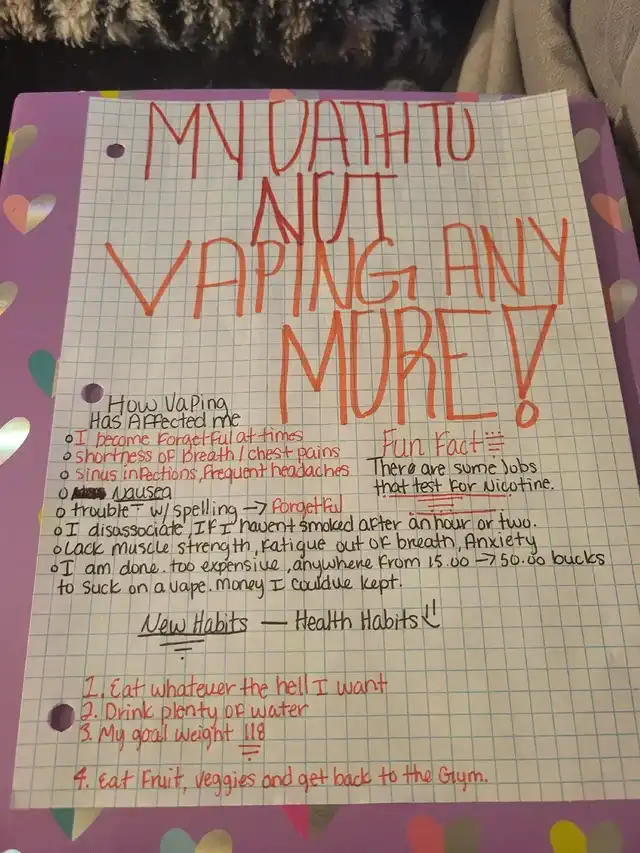 MY PATH TO
NOT
VAPING ANY
MORE!
How Vaping
Has Affected me
I become forgetful at times
shortness of breath/chest pains
sinus infections, frequent headaches
Nausea
trouble w/spelling → forgetful
I disassociate, If I havent smoked after an hour or two.
Lack muscle strength, fatigue out of breath, Anxiety
I am done. too expensive, anywhere from 15.00 → 50.00 bucks
to suck on a vape. money I couldve kept.
Fun Fact
There are some jobs
that test for Nicotine.
New Habits — Health Habits
1. Eat whatever the hell I want
2. Drink plenty of water
3. My goal weight 118
4. Eat Fruit, veggies and get back to the Gym.